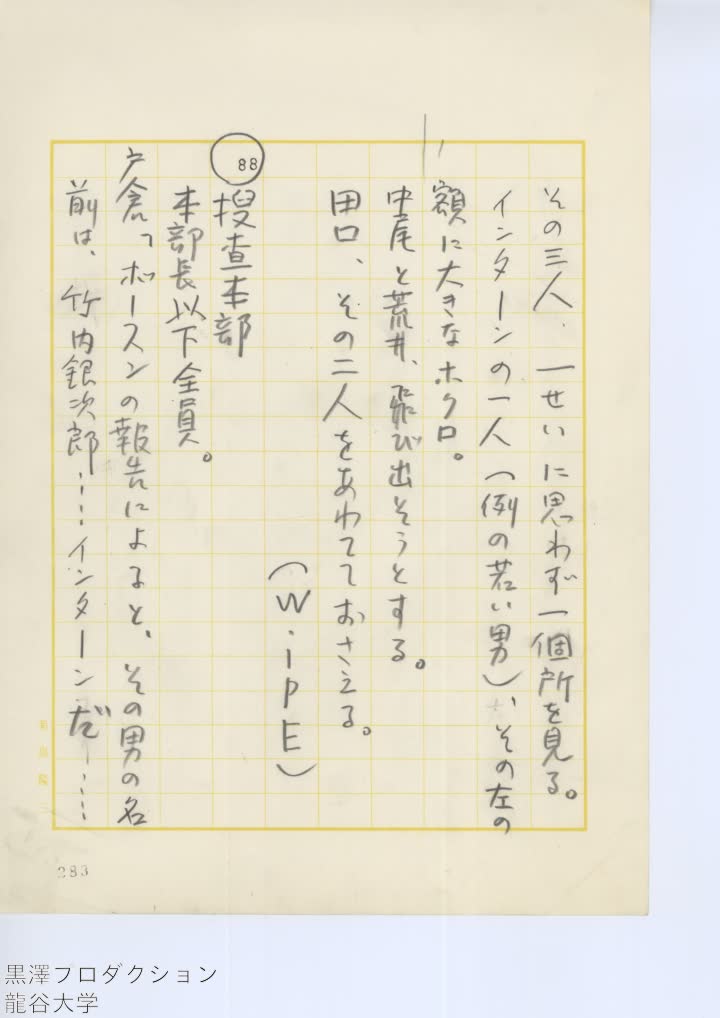 その三人、一せいに思わず一個所を見る。
インターンの一人（例の若い男）、その左の
額に大きなホクロ。
中尾と荒井、飛び出そうとする。
田口、その二人をあわてておさえる。
（W・ipE）
88
捜査本部
本部長以下全員。
戸倉「ボースンの報告によると、その男の名
前は、竹内銀次郎……インターンだ……
283
黒澤プロダクション
龍谷大学